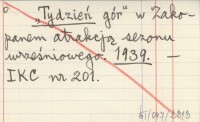 „Tydzień gór" w Zako-
panem atrakcją sezonu
wrześniowego. 1939. —
IKC nr 201.